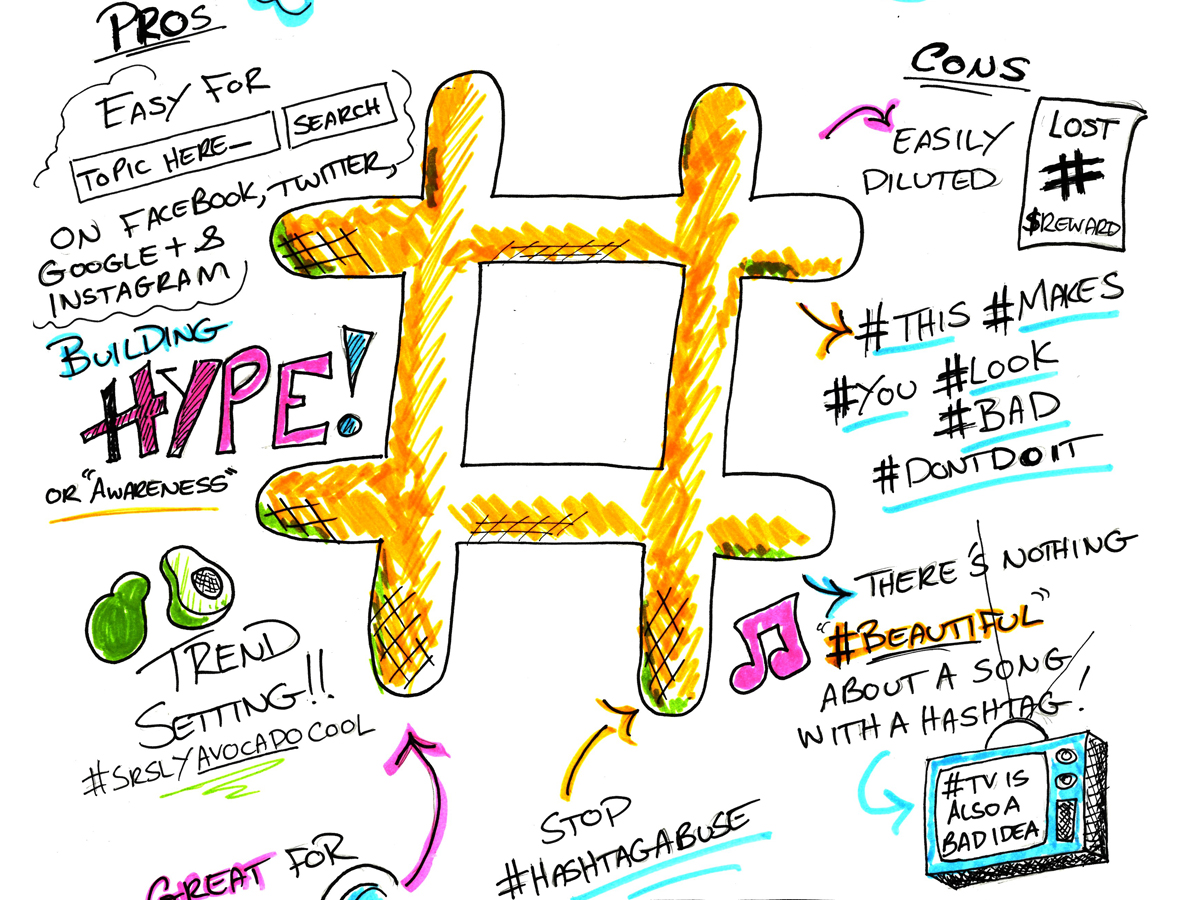 PROS
EASY FOR
TOPIC HERE_ SEARCH
ON FACEBOOK, TWITTER,
GOOGLE+ &
INSTAGRAM
BUILDING
HYPE!
OR "AWARENESS"
TREND
SETTING!!
#SRSLYAVOCADOCOOL
GREAT FOR
STOP
#HASHTAGABUSE
CONS
EASILY
DILUTED
LOST
#
$REWARD
#THIS #MAKES
#YOU #LOOK
#BAD
#DONTDOIT
THERE'S NOTHING
"#BEAUTIFUL"
ABOUT A SONG
WITH A HASHTAG!
#TV IS
ALSO A
BAD IDEA